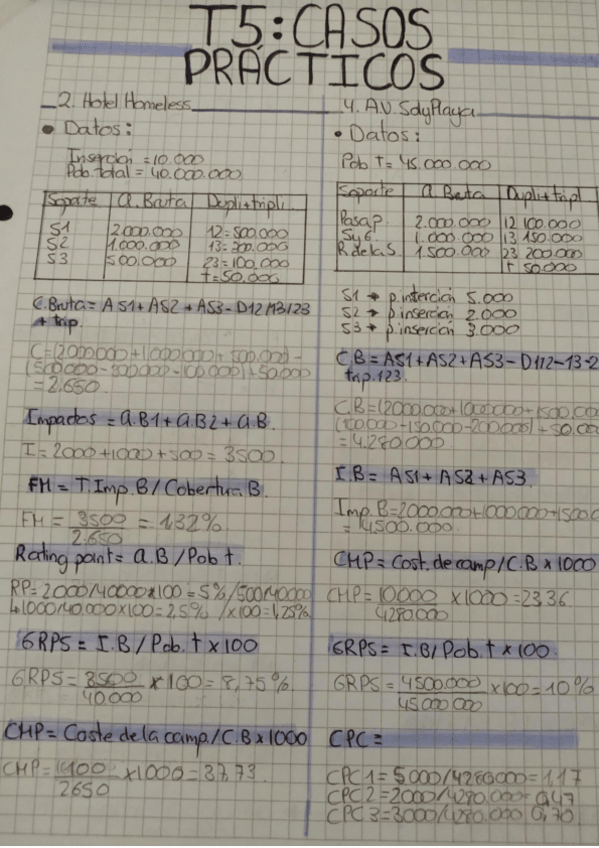 T5: CASOS
PRÁCTICOS
2. Hotel Homeless
• Datos:
Inserción = 10.000
Pob. total = 40.000.000
Soporte a. Bruta Dupli+tripli.
S1 2.000.000 12=500.000
S2 1.000.000 13=300.000
S3 500.000 23=100.000
t=50.000
C.Bruta = AS1+AS2+AS3-D12/13/23
+ trip.
C=(2000000+1000000+500.000)-
(500000-300000-100.000)+50.000
=2.650
Impactos = a.B1+a.B2+a.B.
I=2000+1000+500=3500.
FM = T.Imp.B/Cobertura B.
FM = 3500 = 1,32%
2.650
Rating point = a.B/Pob t.
RP=2000/40000x100=5%/500/40000
↳1000/40.000x100=2,5% /x100=1,25%
GRPS = I.B/Pob.t x100
GRPS = 3500 x 100 = 8,75%
40.000
CMP = Coste de la camp/C.B x1000
x1000=37,73
2650
4. A.V. SdyPlaya
• Datos:
Pob T = 45.000.000
Soporte a Bruta Dupli+tripl
Pasap. 2.000.000 12 100.000
Sy6. 1.000.000 13 150.000
R de la S 1 500.000 23 200000
t 50000
S1 → p.interción 5.000
S2 → p.inserción 2.000
S3 → p.inserción 3.000
CB = AS1+AS2+AS3-D112-13-2
trip.123.
C.B=(2000.000+1000000+1500.000
-150.000-200000)+50.00
=4.280.000
I.B = AS1+AS2+AS3.
Imp.B=2000000+1000000+1500.0
=4500.000.
CMP = Cost. de camp/C.B x1000
CMP = 10000 x1000 = 23,36.
4280000
GRPS = I.B/Pob.t x100.
GRPS = 4500.000 x100=10%
45000000
CPC =
CPC1=5000/4280000=1,17
CPC2=2000/4280.000=0,47
CPC3=3000/4280.000 0,70